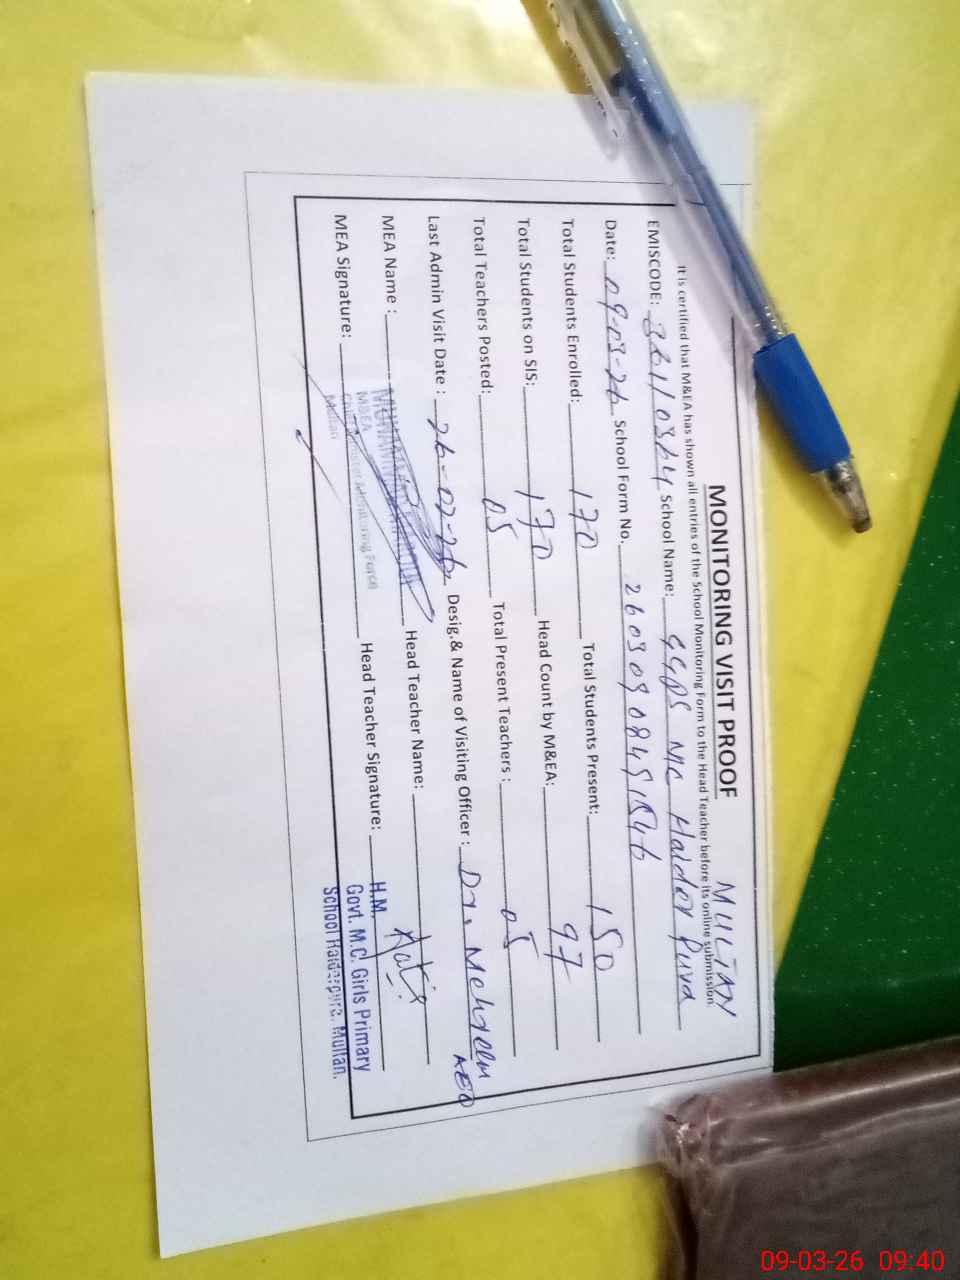 MONITORING VISIT PROOF MULTAN
It is certified that M&EA has shown all entries of the School Monitoring Form to the Head Teacher before its online submission.
EMISCODE: 36110364 School Name: GGPS MC Haider Pura
Date: 09-03-26 School Form No. 26030908451546
Total Students Enrolled: 170 Total Students Present: 150
Total Students on SIS: 170 Head Count by M&EA: 97
Total Teachers Posted: 05 Total Present Teachers: 05
Last Admin Visit Date : 26-02-26 Desig.& Name of Visiting Officer : Dr. Mehreen AEO
MEA Name : Head Teacher Name:
M&EA
Chief Minister Monitoring Force
Multan
MEA Signature: Head Teacher Signature:
H.M.
Govt. M.C. Girls Primary
School Haiderpura, Multan.
09-03-26 09:40